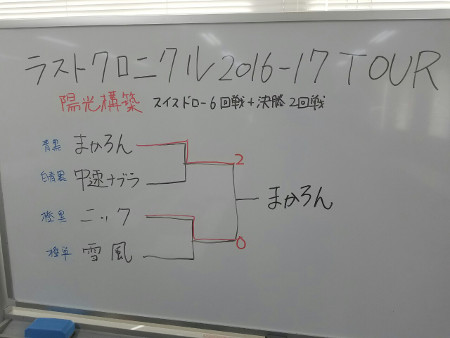 ラストクロニクル2016-17 TOUR
陽光構築 スイスドロー6回戦+決勝2回戦
青黒 まかろん
白青黒 中速ナブラ
2
まかろん
橙黒 ニック
0
雪風